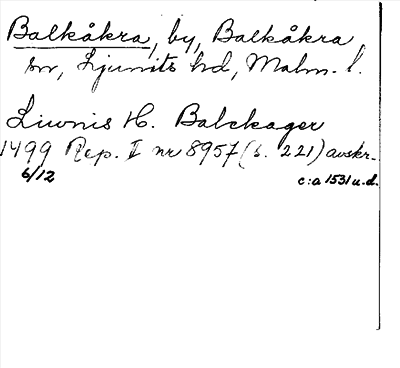 Balkåkra, by, Balkåkra
sn, Ljunits hd, Malm. l.
Liwnis H. Balckager
1499 Rep. II nr 8957 (s. 221) avskr.
6/12 c:a 1531 u.d.